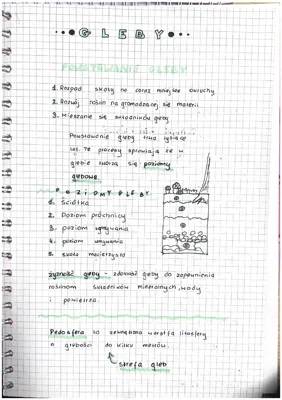 GLEBY
POWSTAWANIE GLEBY
1. Rozpad skały na coraz mniejsze okruchy
2. Rozwój roślin na gromadzącej się materii
3. Mieszanie się składników gleby
Powstawanie gleby trwa tysiące
lat. Te procesy sprawiają że w
glebie tworzą się poziomy
glebowe
POZIOMY GLEBY
1. Ściółka
2. Poziom próchnicy
3. poziom wymywania
4. poziom wmywania
5. skała macierzysta
żyzność gleby - zdolność gleby do zapewnienia
roślinom składników mineralnych, wody
i powietrza.
Pedosfera to zewnętrzna warstwa litosfery
o głębości do kilku metrów.
strefa gleb